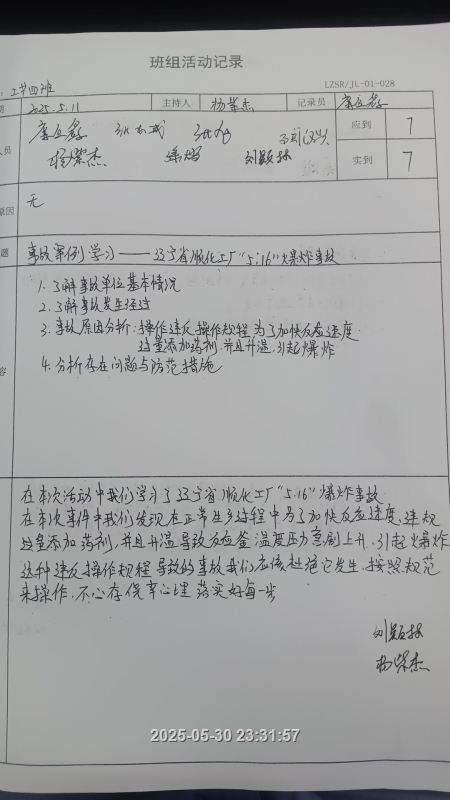 班组活动记录
LZSR/JL-01-028
工艺四班
题 2025.5.11 主持人 杨紫杰 记录员
人员 应到 7
杨紫杰 刘颖林 实到 7
原因 无
题 事故案例学习——辽宁省顺化工厂“5.16”爆炸事故
1. 了解事故单位基本情况
2. 了解事故发生经过
3. 事故原因分析：操作违反操作规程为了加快反应速度
过量添加药剂，并且升温，引起爆炸
容 4. 分析存在问题与防范措施
在本次活动中我们学习了辽宁省顺化工厂“5.16”爆炸事故
在本次事件中我们发现在正常生产过程中为了加快反应速度，违规
过量添加药剂，并且升温导致反应釜温度压力急剧上升，引起爆炸
这种违反操作规程导致的事故我们应该杜绝它发生，按照规范
来操作，不心存侥幸心理 落实好每一步
刘颖林
杨紫杰
2025-05-30 23:31:57